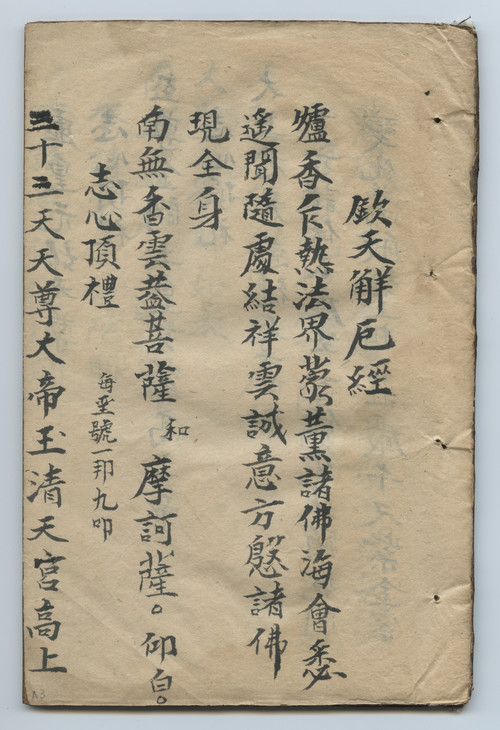 欽天解厄經
爐香乍熱法界蒙薰諸佛海會悉
遙聞隨處結祥雲誠意方慇諸佛
現全身
南無香雲葢菩薩和摩訶薩。仰白。
志心頂禮 每至號一邦九叩
三十三天天尊大帝玉清天宮高上